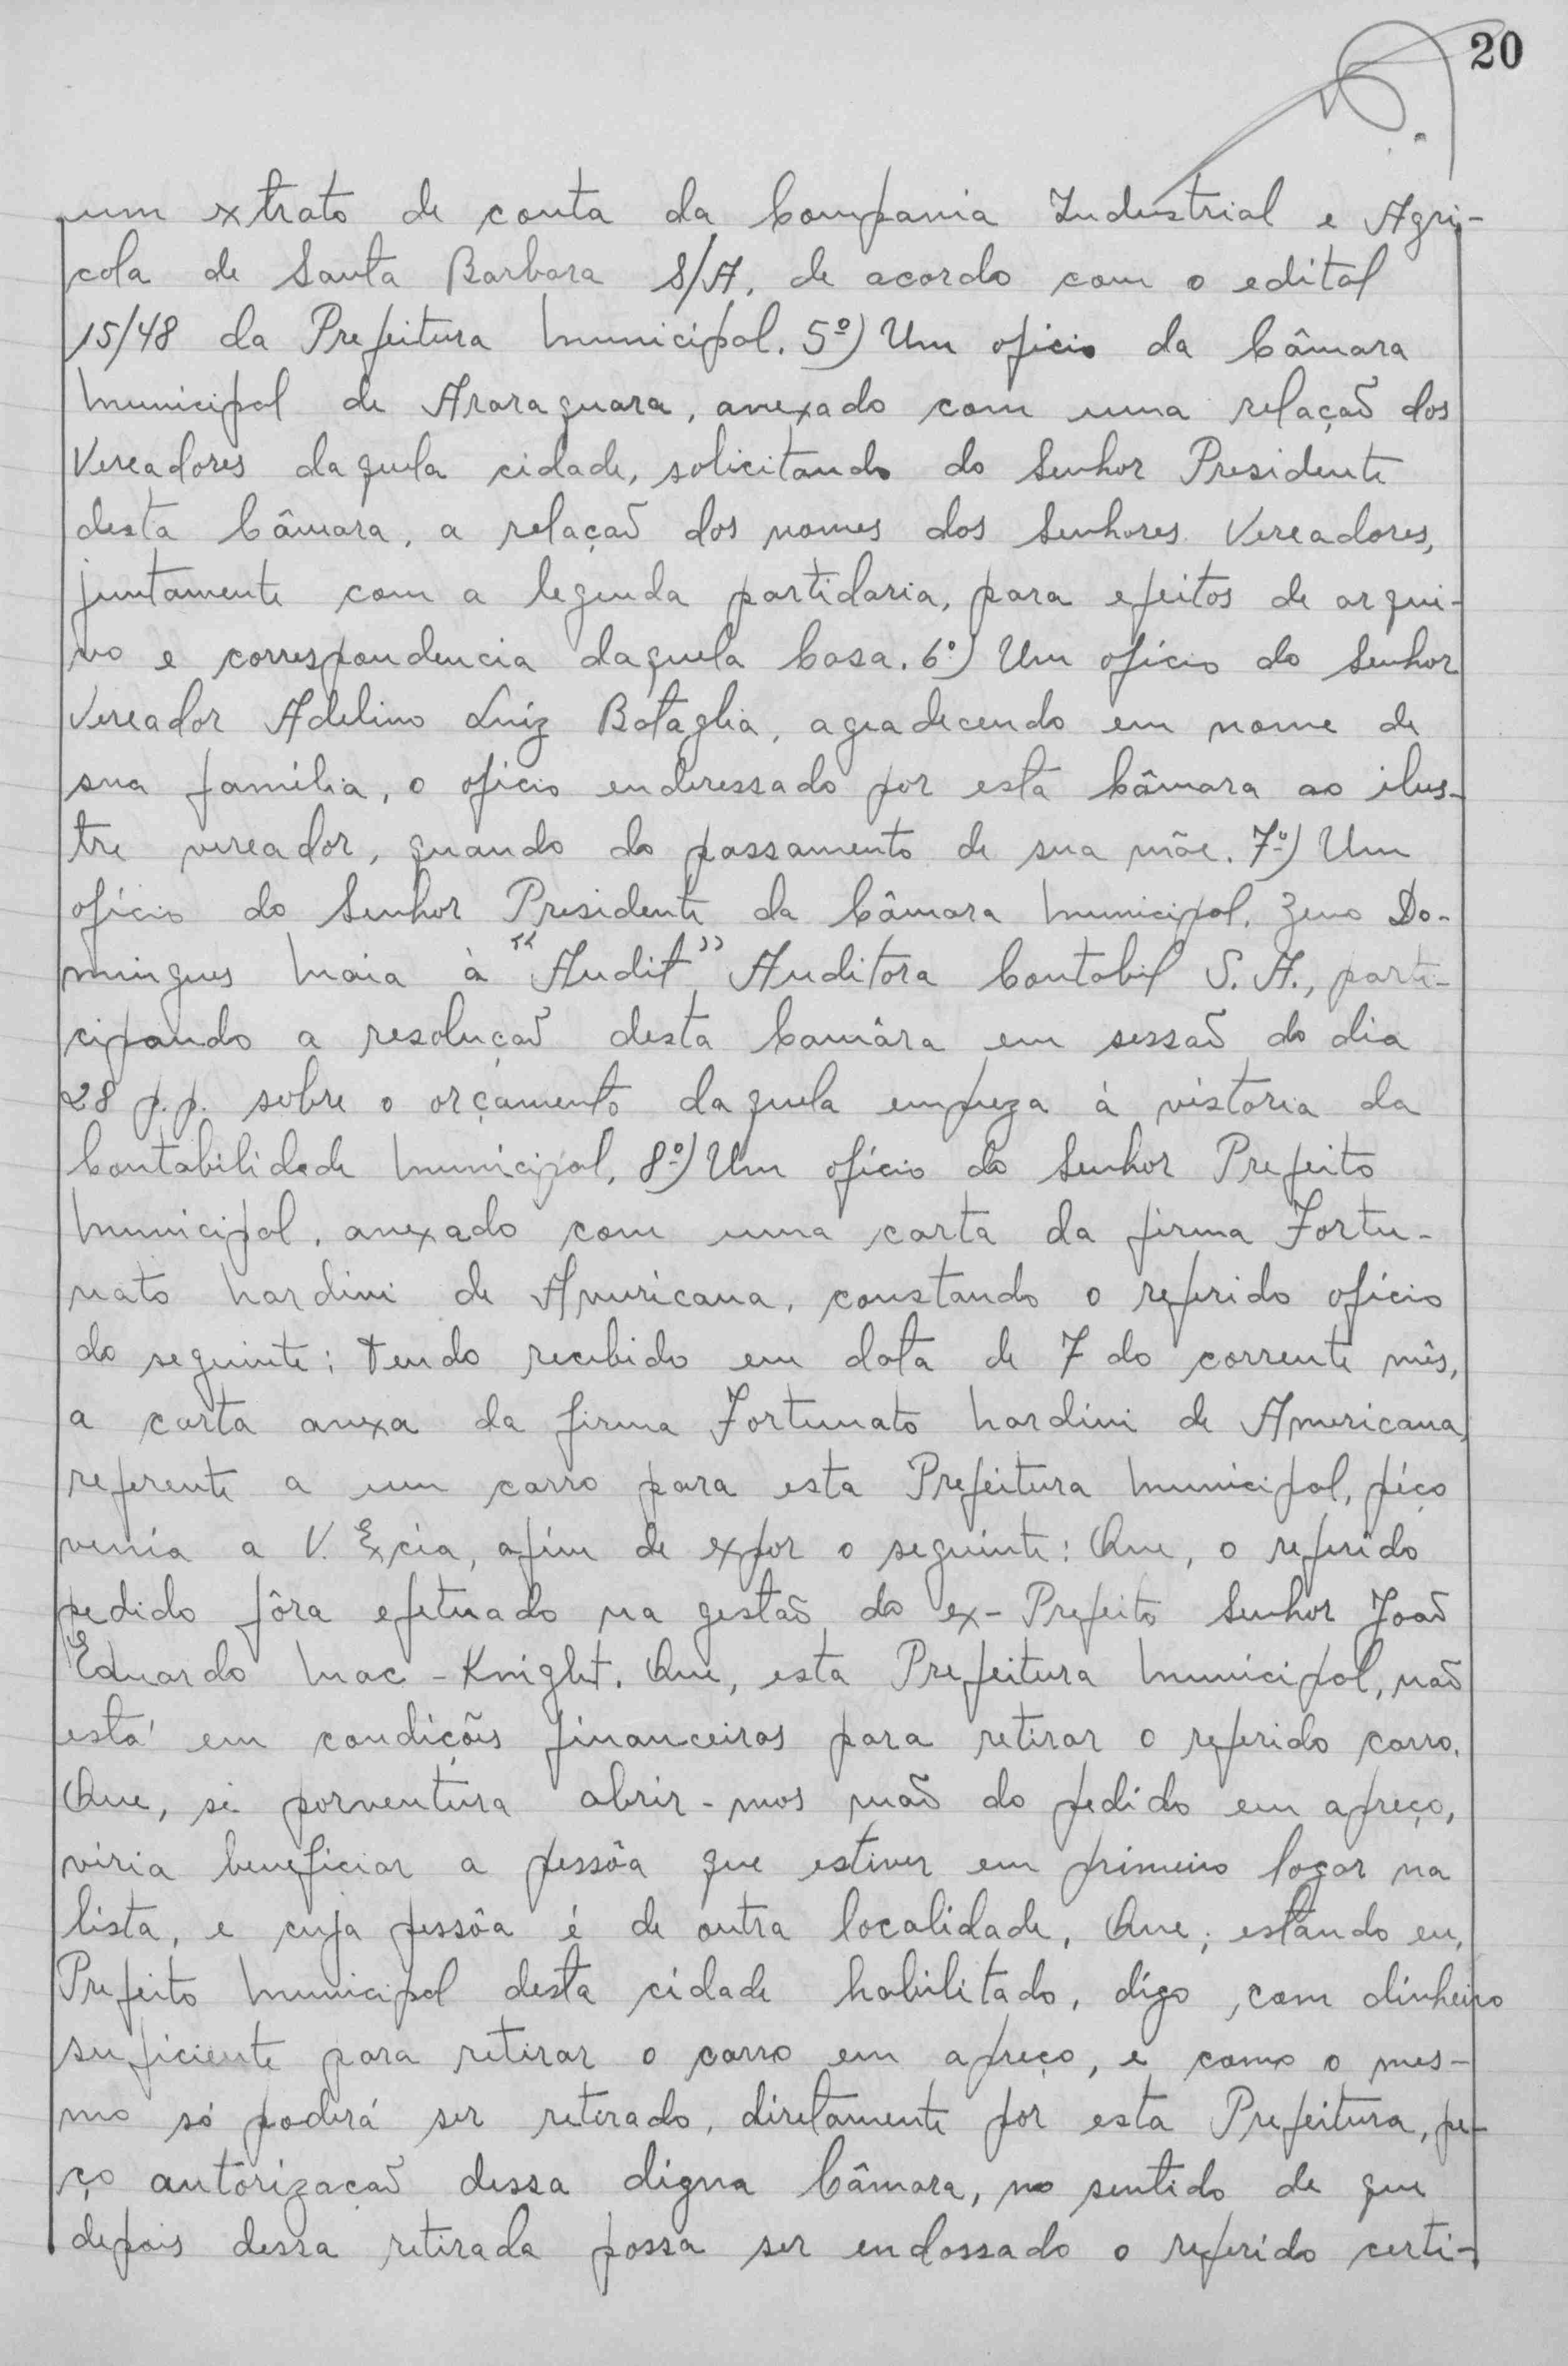 20
um extrato de conta da Compania Industrial e Agri-
cola de Santa Barbara S/A. de acordo com o edital
15/48 da Prefeitura Municipal. 5º) Um oficio da Câmara
Municipal de Araraquara, anexado com uma relação dos
Vereadores daquela cidade, solicitando do Senhor Presidente
desta Câmara, a relação dos nomes dos Senhores Vereadores,
juntamente com a legenda partidaria, para efeitos de arqui-
vo e correspondencia daquela Casa. 6º) Um ofício do Senhor
Vereador Adelino Luiz Bataglia, agradecendo em nome de
sua família, o ofício enderessado por esta Câmara ao ilus-
tre vereador, quando do passamento de sua mãe. 7º) Um
ofício do Senhor Presidente da Câmara Municipal. Zeno Do-
mingues Maia à "Audit" Auditora Contabil S. A., parti-
cipando a resolução desta Camâra em sessão do dia
28 p.p. sobre o orçamento daquela empreza à vistoria da
Contabilidade Municipal. 8º) Um ofício do Senhor Prefeito
Municipal, anexado com uma carta da firma Fortu-
nato Nardini de Americana, constando o referido ofício
do seguinte: Tendo recebido em data de 7 do corrente mês,
a carta anexa da firma Fortunato Nardini de Americana,
referente a um carro para esta Prefeitura Municipal, péço
venia a V. Excia, afim de expor o seguinte: Que, o referido
pedido fôra efetuado na gestão do ex-Prefeito Senhor João
Eduardo Mac-Knight. Que, esta Prefeitura Municipal, não
está em condições financeiras para retirar o referido carro.
Que, si porventura abrir-mos mão do pedido em apreço,
viria beneficiar a pessôa que estiver em primeiro logar na
lista, e cuja pessôa é de outra localidade, Que; estando eu,
Prefeito Municipal desta cidade habilitado, digo, com dinheiro
suficiente para retirar o carro em apreço, e como o mes-
mo só poderá ser retirado, diretamente por esta Prefeitura, pe-
ço autorização dessa digna Câmara, no sentido de que
depois dessa retirada possa ser endossado o referido certi-